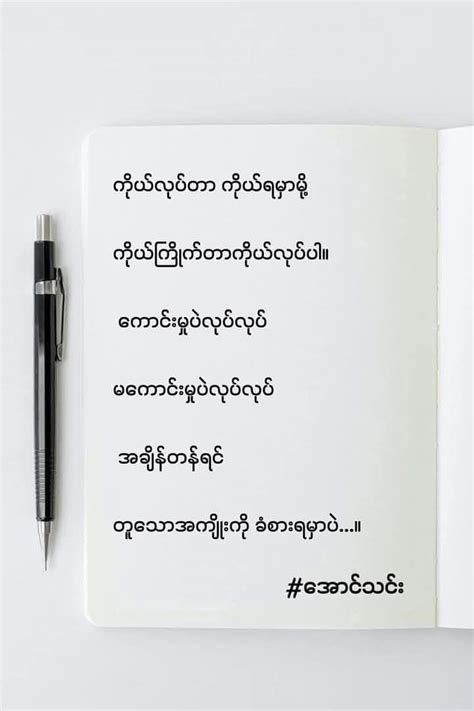 ကိုယ်လုပ်တာ ကိုယ်ရမှာမို့
ကိုယ်ကြိုက်တာကိုယ်လုပ်ပါ။
ကောင်းမှုပဲလုပ်လုပ်
မကောင်းမှုပဲလုပ်လုပ်
အချိန်တန်ရင်
တူသောအကျိုးကို ခံစားရမှာပဲ...။
#အောင်သင်း